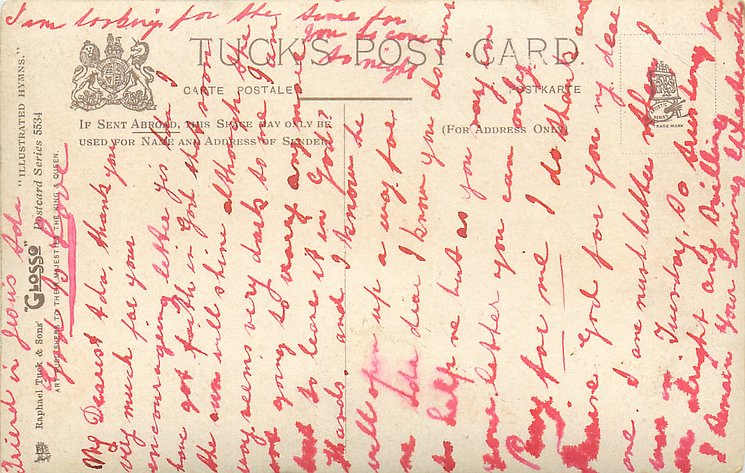 I am looking for the time for
you to come
to night
TUCK'S POST CARD.
CARTE POSTALE
POSTKARTE
IF SENT ABROAD, THIS SPACE MAY ONLY BE
USED FOR NAME AND ADDRESS OF SENDER
(FOR ADDRESS ONLY)
TRADE MARK
Raphael Tuck & Sons' "GLOSSO" Postcard Series 5534 "ILLUSTRATED HYMNS."
ART PUBLISHERS TO THEIR MAJESTIES THE KING & QUEEN.
My Dearest Ada, thank you
very much for your
encouraging letter yes Ada I
have got faith in God that soon
the sun will shine although the
way seems very dark to me I am
not going to worry any more
but to leave it in God's
Hands. and I know he
will open up a way for
me Ada dear I know you do
to help me but as you say in
your letter you can only
Pray for me I do thank and
God for you my dear
me I are much better than I
was on Tuesday, So trusting you
are alright and Smiling
I remain Your Loving
Friend in Jesus Ada